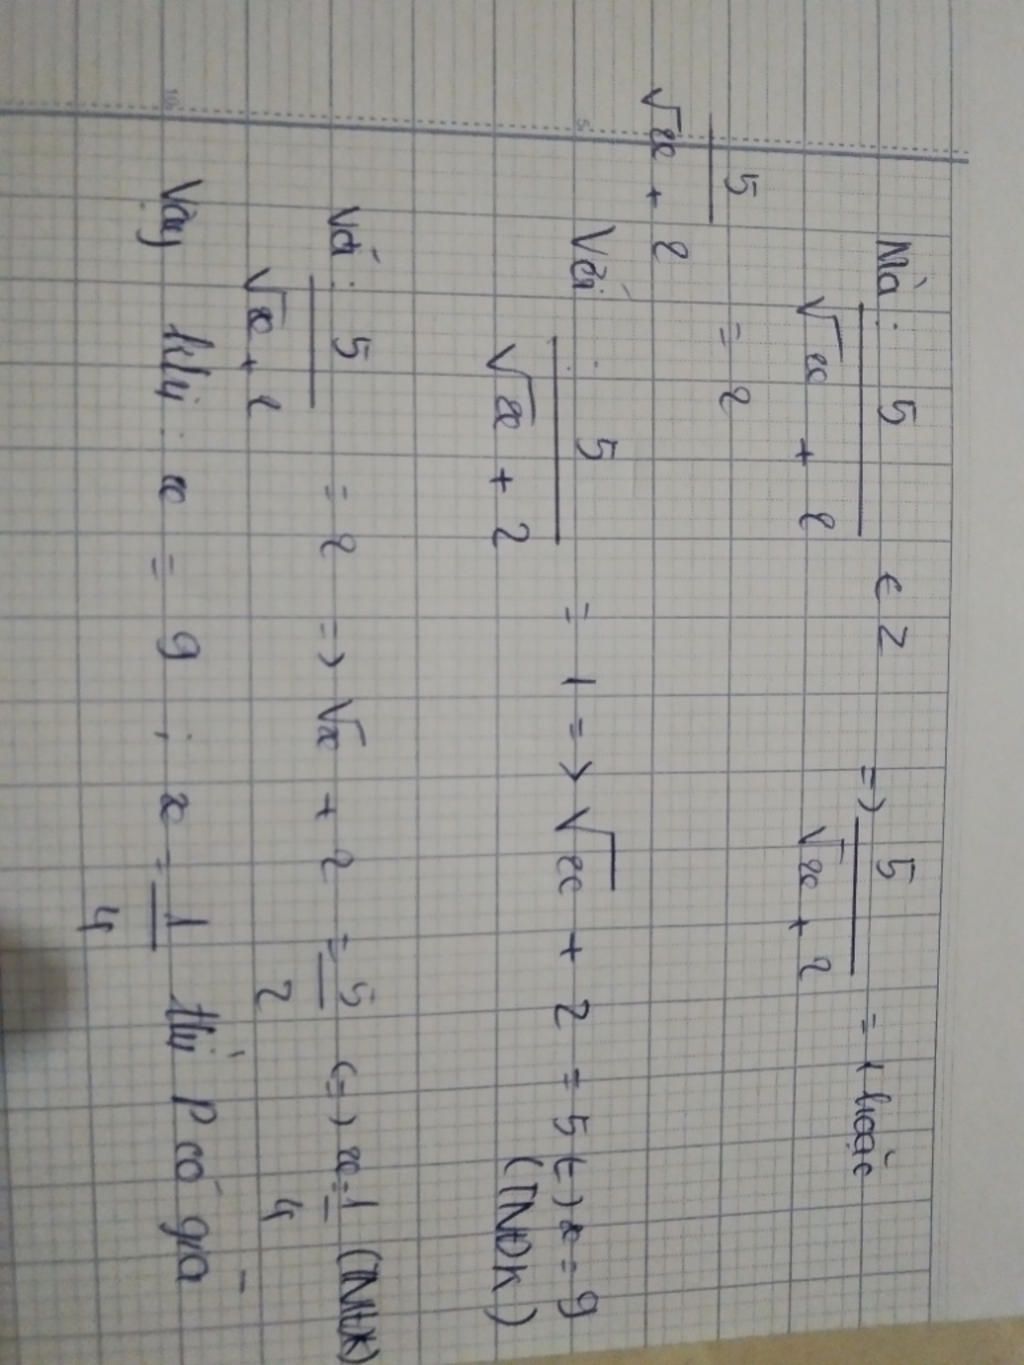 Mà: 5/(√x + 2) ∈ Z => 5/(√x + 2) = 1 hoặc
5/(√x + 2) = 2
Với: 5/(√x + 2) = 1 => √x + 2 = 5 (=) x = 9
(TNĐK)
Với: 5/(√x + 2) = 2 => √x + 2 = 5/2 (=) x = 1/4 (TMĐK)
Vậy khi: x = 9 ; x = 1/4 thì P có giá
5
10